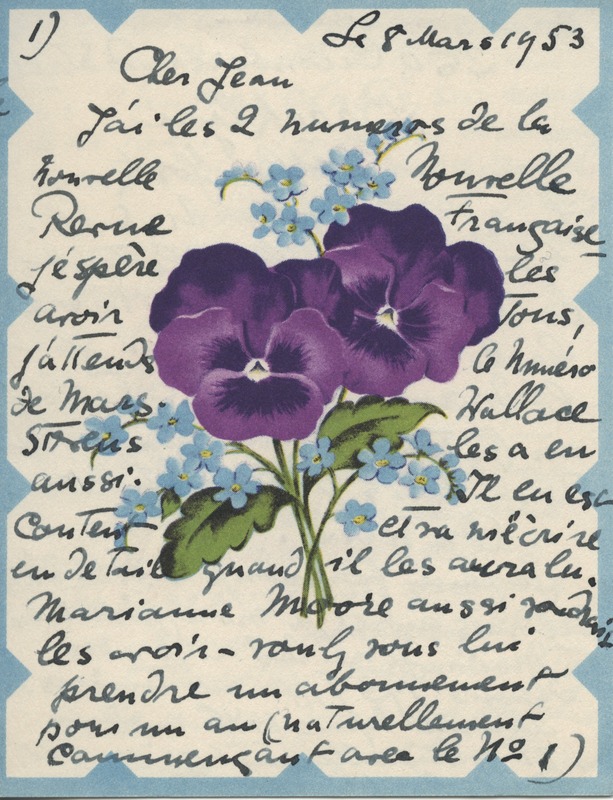 1)
Le 8 Mars 1953
Cher Jean
J'ai les 2 numeros de la
Nouvelle Nouvelle
Revue Française
j'éspère les
avoir Tous,
j'attends le Numéro
de Mars. Wallace
Stevens les a eu
aussi. Il en est
content et va m'écrire
en detail quand il les aura lu.
Marianne Moore aussi voudrais
les avoir - voulez vous lui
prendre un abonnement
pour un an (naturellement
commençant avec le No 1)